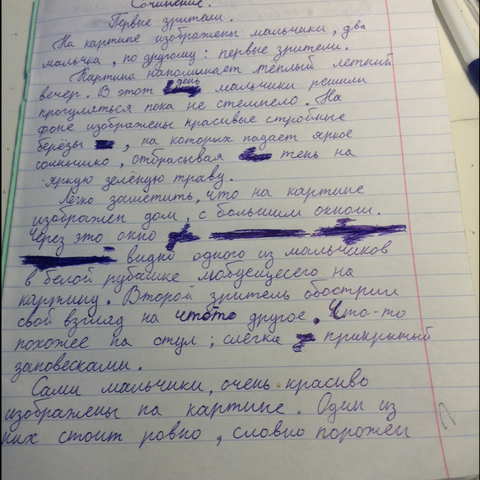 Сочинение.
Первые зрители.
На картине изображены мальчики, два
мальчка, по другому: первые зрители.
Картина напоминает тёплый летний
вечер. В этот день мальчики решили
прогуляться пока не стемнело. На
фоне изображены красивые стройные
берёзы , на которых падает яркое
солнышко, отбрасывая тень на
яркую зелёную траву.
Легко заметить, что на картине
изображен дом, с большим окном.
Через это окно
видно одного из мальчиков
в белой рубашке любуещегося на
картину. Второй зритель обострил
свой взгляд на чтото другое. Что-то
похожее на стул; слегка прикрытый
заповесками.
Сами мальчики, очень красиво
изображены на картине. Один из
них стоит ровно, словно поражён